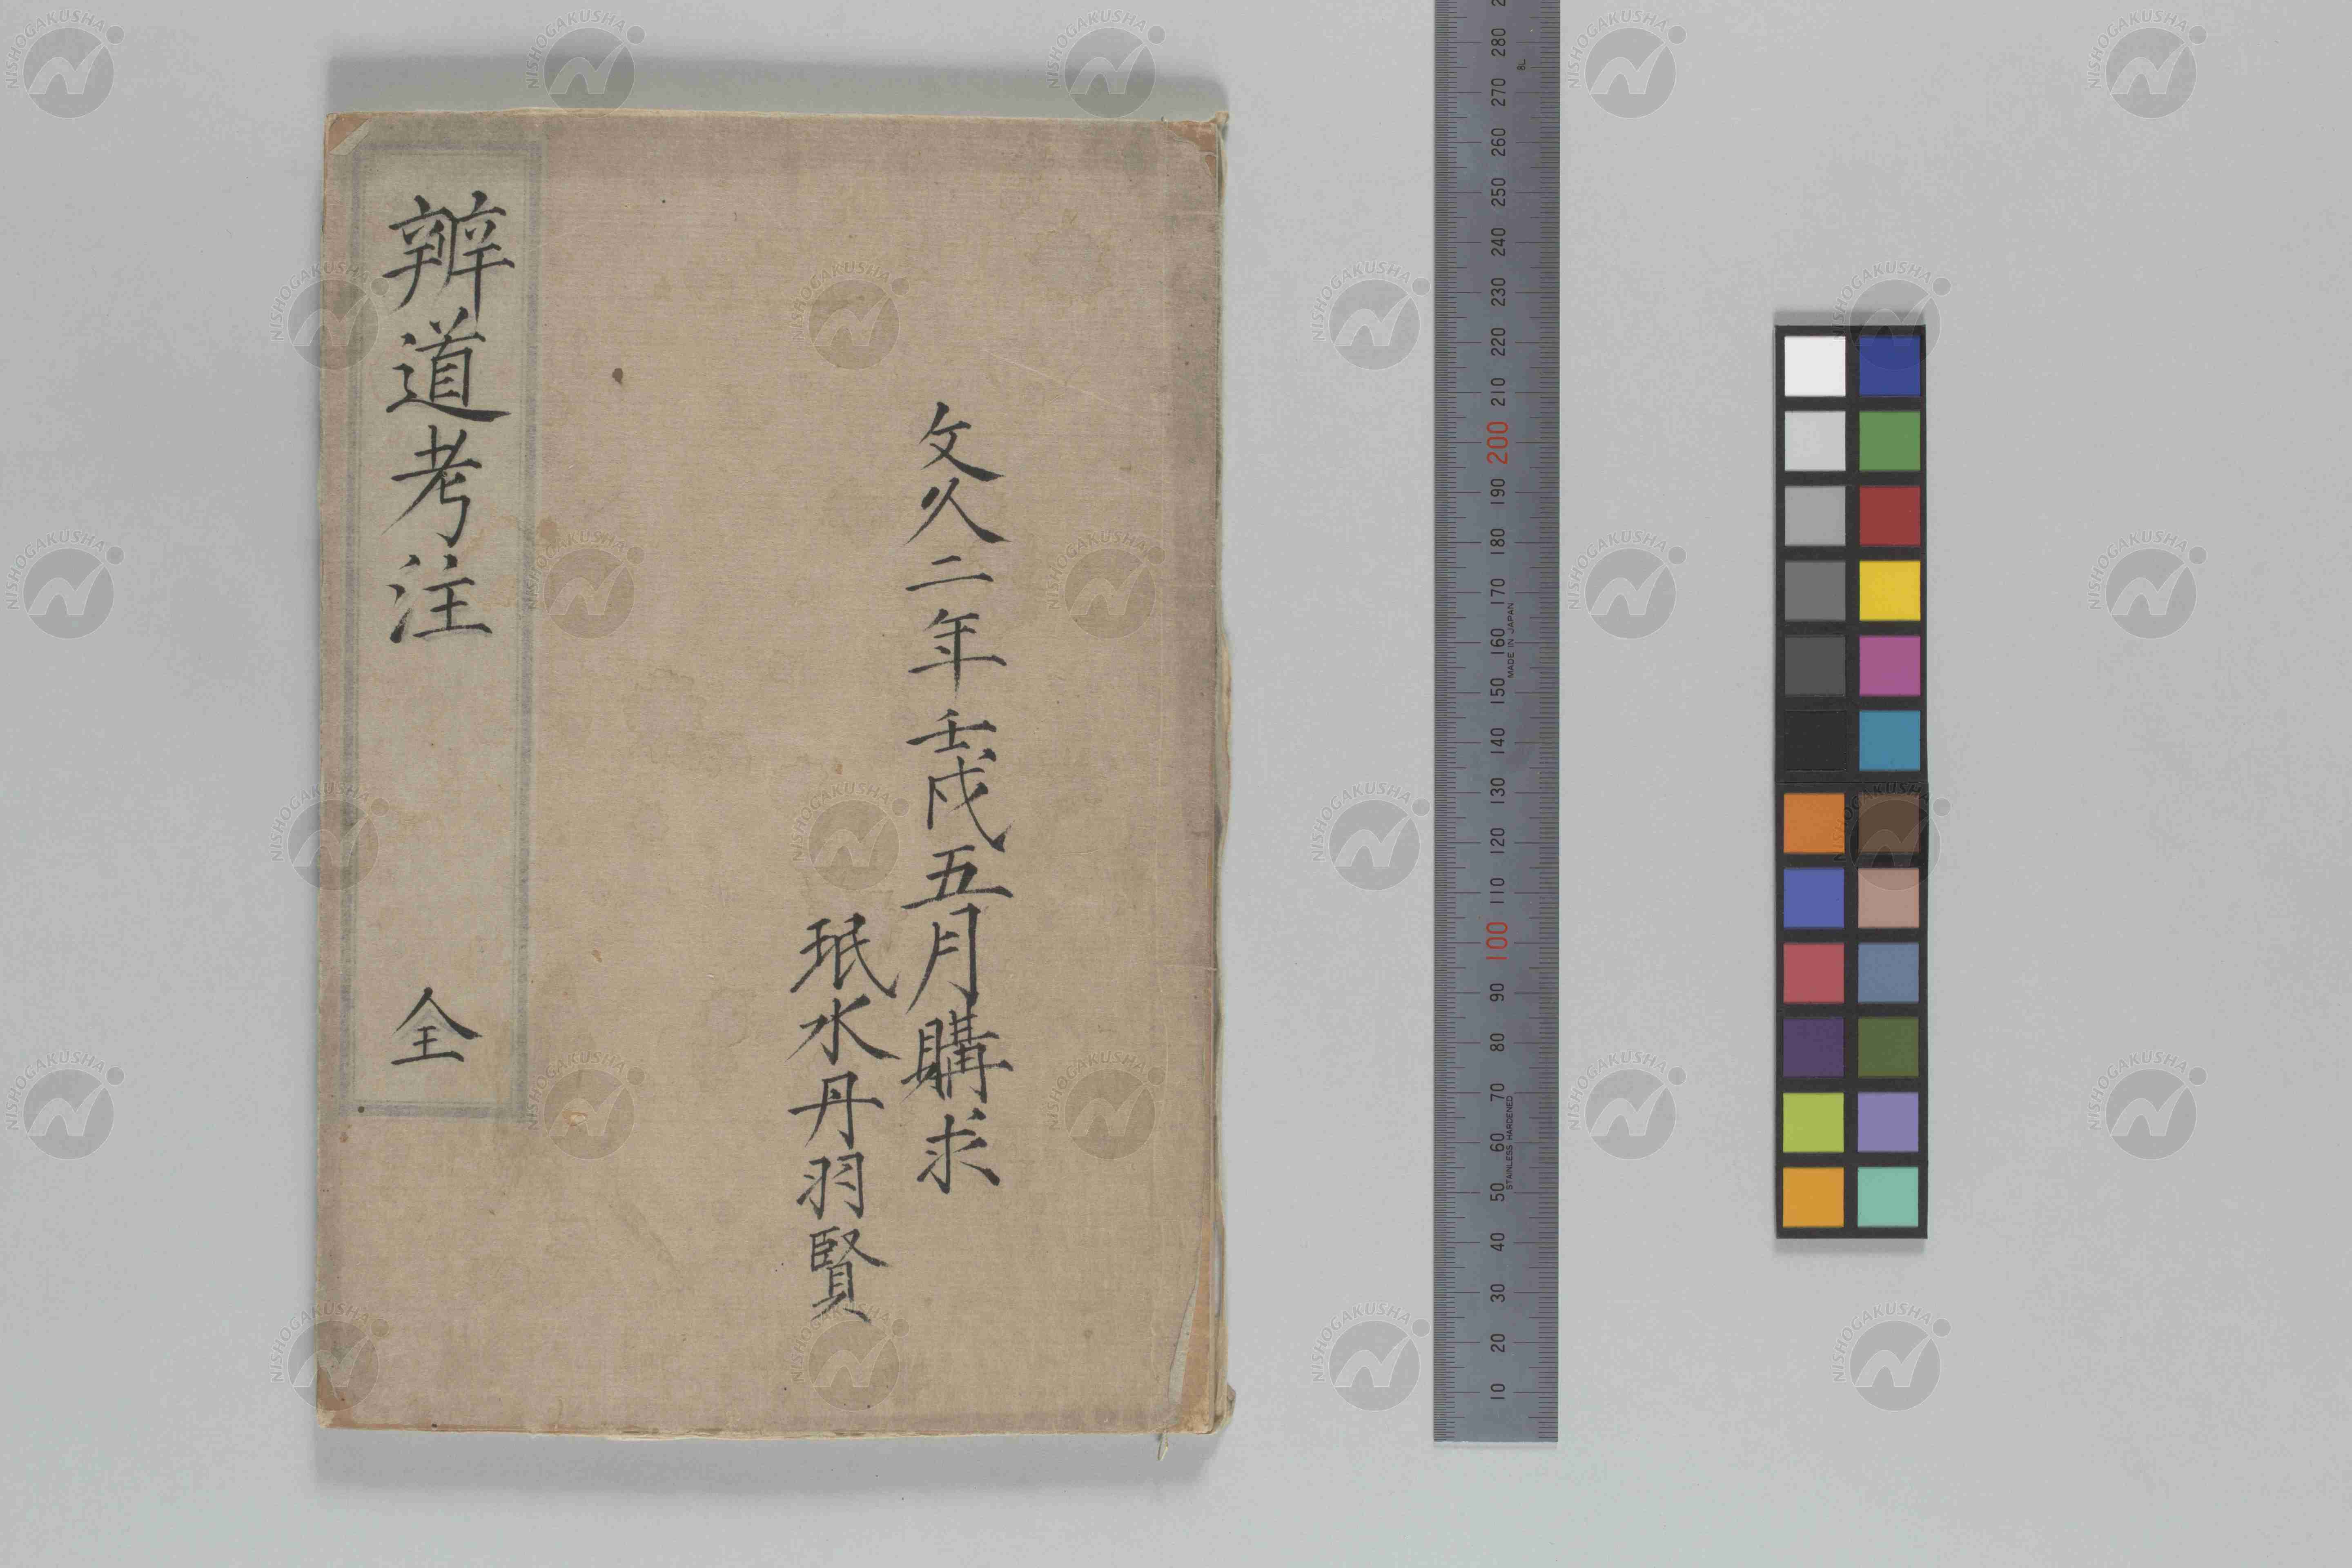 文久二年壬戌五月購求
珉水丹羽賢
辨道考注
全
280
270
260
250
240
230
220
210
200
190
180
170
160
150
140
130
120
110
100
90
80
70
60
50
40
30
20
10
MADE IN JAPAN
STAINLESS HARDENED
NISHOGAKUSHA